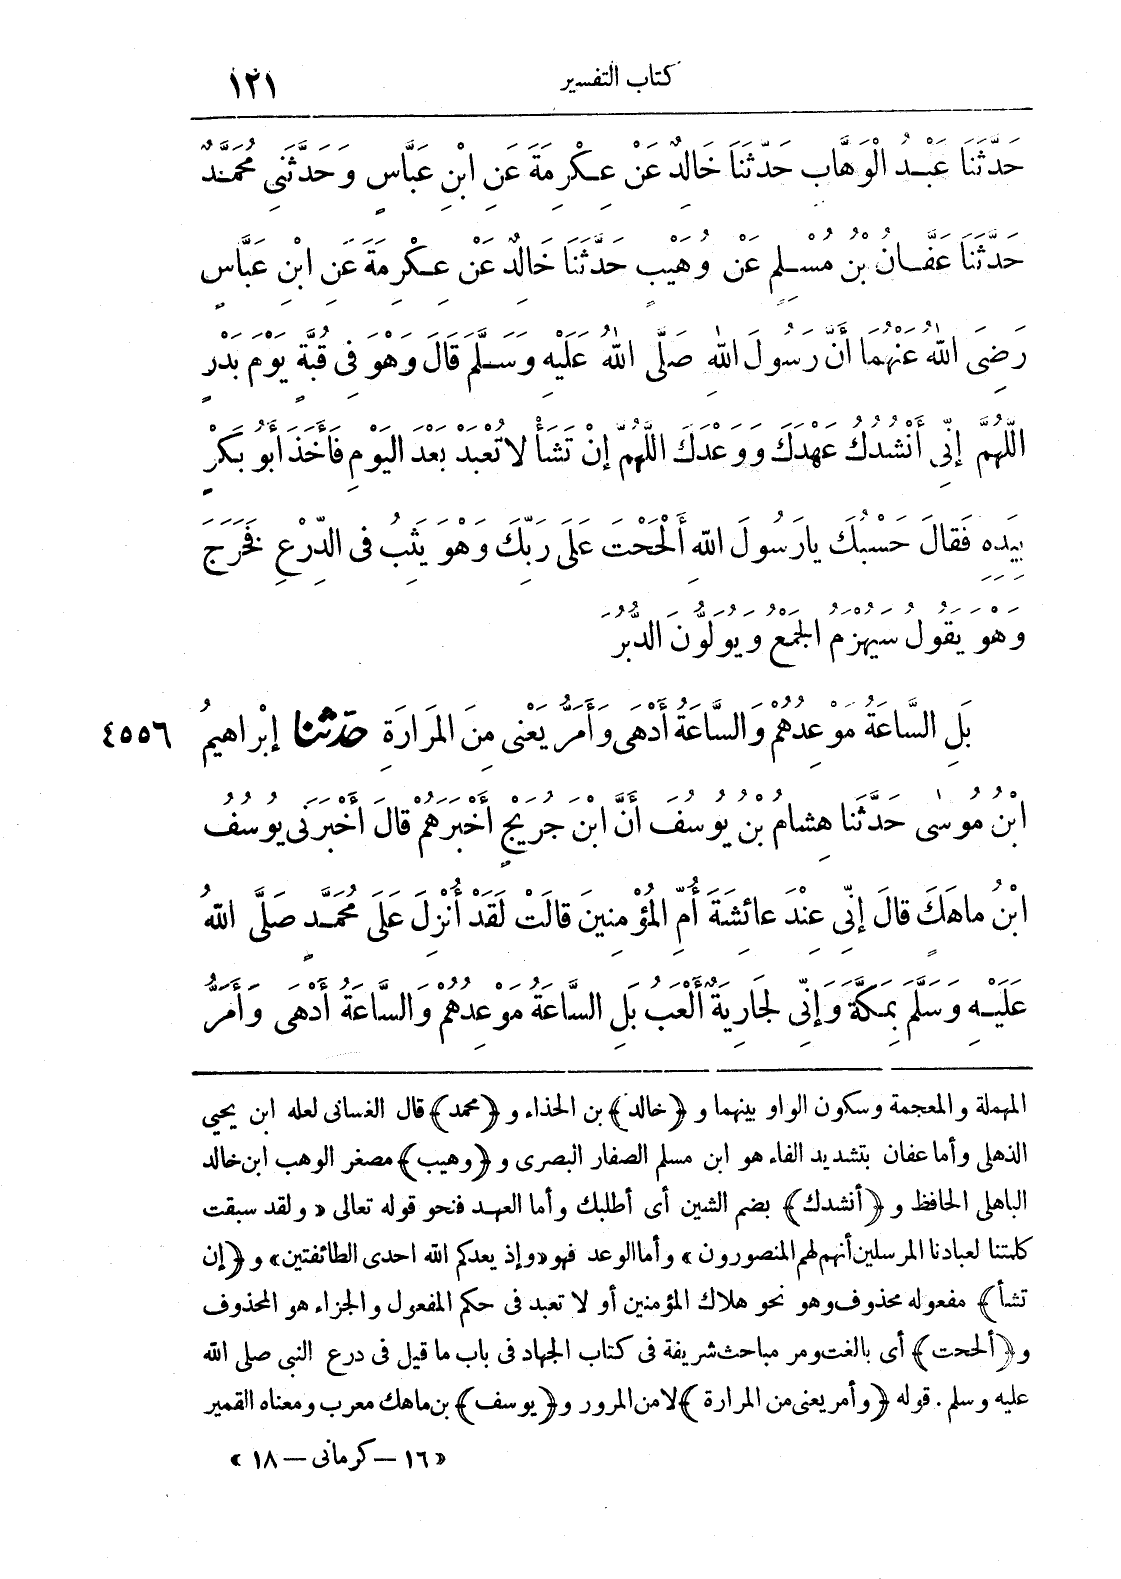 كتاب التفسير ١٢١
حَدَّثَنَا عَبْدُ الْوَهَّابِ حَدَّثَنَا خَالِدٌ عَنْ عِكْرِمَةَ عَنِ ابْنِ عَبَّاسٍ وَحَدَّثَنِي مُحَمَّدٌ
حَدَّثَنَا عَفَّانُ بْنُ مُسْلِمٍ عَنْ وُهَيْبٍ حَدَّثَنَا خَالِدٌ عَنْ عِكْرِمَةَ عَنِ ابْنِ عَبَّاسٍ
رَضِىَ اللّٰهُ عَنْهُمَا أَنَّ رَسُولَ اللّٰهِ صَلَّى اللّٰهُ عَلَيْهِ وَسَلَّمَ قَالَ وَهْوَ فِى قُبَّةٍ يَوْمَ بَدْرٍ
اللَّهُمَّ إِنِّى أَنْشُدُكَ عَهْدَكَ وَوَعْدَكَ اللَّهُمَّ إِنْ تَشَأْ لَا تُعْبَدْ بَعْدَ الْيَوْمِ فَأَخَذَ أَبُو بَكْرٍ
بِيَدِهِ فَقَالَ حَسْبُكَ يَارَسُولَ اللّٰهِ أَلْحَحْتَ عَلَى رَبِّكَ وَهْوَ يَثِبُ فِى الدِّرْعِ فَخَرَجَ
وَهْوَ يَقُولُ سَيُهْزَمُ الْجَمْعُ وَيُوَلُّونَ الدُّبُرَ
بَلِ السَّاعَةُ مَوْعِدُهُمْ وَالسَّاعَةُ أَدْهَى وَأَمَرُّ يَعْنِى مِنَ المَرَارَةِ حَدَّثَنَا إِبْرَاهِيمُ ٤٥٥٦
ابْنُ مُوسَى حَدَّثَنَا هِشَامُ بْنُ يُوسُفَ أَنَّ ابْنَ جُرَيْجٍ أَخْبَرَهُمْ قَالَ أَخْبَرَنِى يُوسُفُ
ابْنُ مَاهَكٍ قَالَ إِنِّى عِنْدَ عَائِشَةَ أُمِّ المُؤْمِنِينَ قَالَتْ لَقَدْ أُنْزِلَ عَلَى مُحَمَّدٍ صَلَّى اللّٰهُ
عَلَيْهِ وَسَلَّمَ بِمَكَّةَ وَإِنِّى لَجَارِيَةٌ أَلْعَبُ بَلِ السَّاعَةُ مَوْعِدُهُمْ وَالسَّاعَةُ أَدْهَى وَأَمَرُّ
المهملة والمعجمة وسكون الواو بينهما و ﴿خالد﴾ بن الحذاء و ﴿محمد﴾ قال الغسانى لعله ابن يحيي
الذهلى وأما عفان بتشديد الفاء هو ابن مسلم الصفار البصرى و ﴿وهيب﴾ مصغر الوهب ابن خالد
الباهلى الحافظ و ﴿أنشدك﴾ بضم الشين أى أطلبك وأما العهد فنحو قوله تعالى « ولقد سبقت
كلمتنا لعبادنا المرسلين أنهم لهم المنصورون » وأما الوعد فهو « وإذ يعدكم الله احدى الطائفتين » و ﴿إن
تشأ﴾ مفعوله محذوف وهو نحو هلاك المؤمنين أو لا تعبد فى حكم المفعول والجزاء هو المحذوف
و ﴿ألححت﴾ أى بالغت ومر مباحث شريفة فى كتاب الجهاد فى باب ما قيل فى درع النبى صلى الله
عليه وسلم . قوله ﴿وأمر يعنى من المرارة﴾ لا من المرور و ﴿يوسف﴾ بن ماهك معرب ومعناه القمير
« ١٦ – كرمانى – ١٨ »